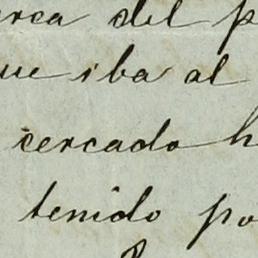 erca del p
ue iba al
cercado h
tenido po